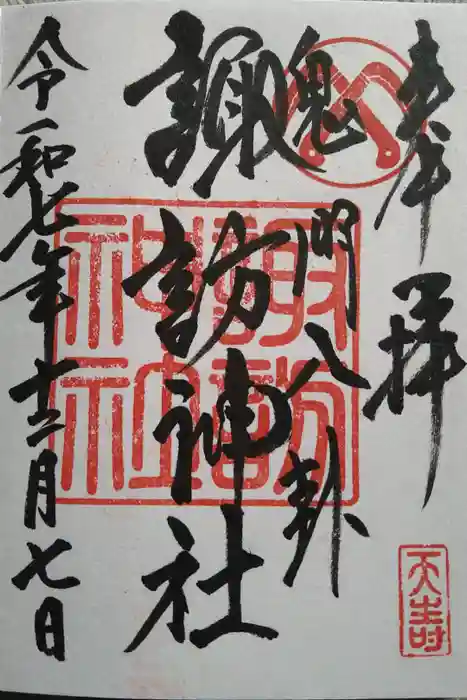 奉拝
鬼門八卦
諏訪神社
令和七年十二月七日
諏訪
神社
天寿